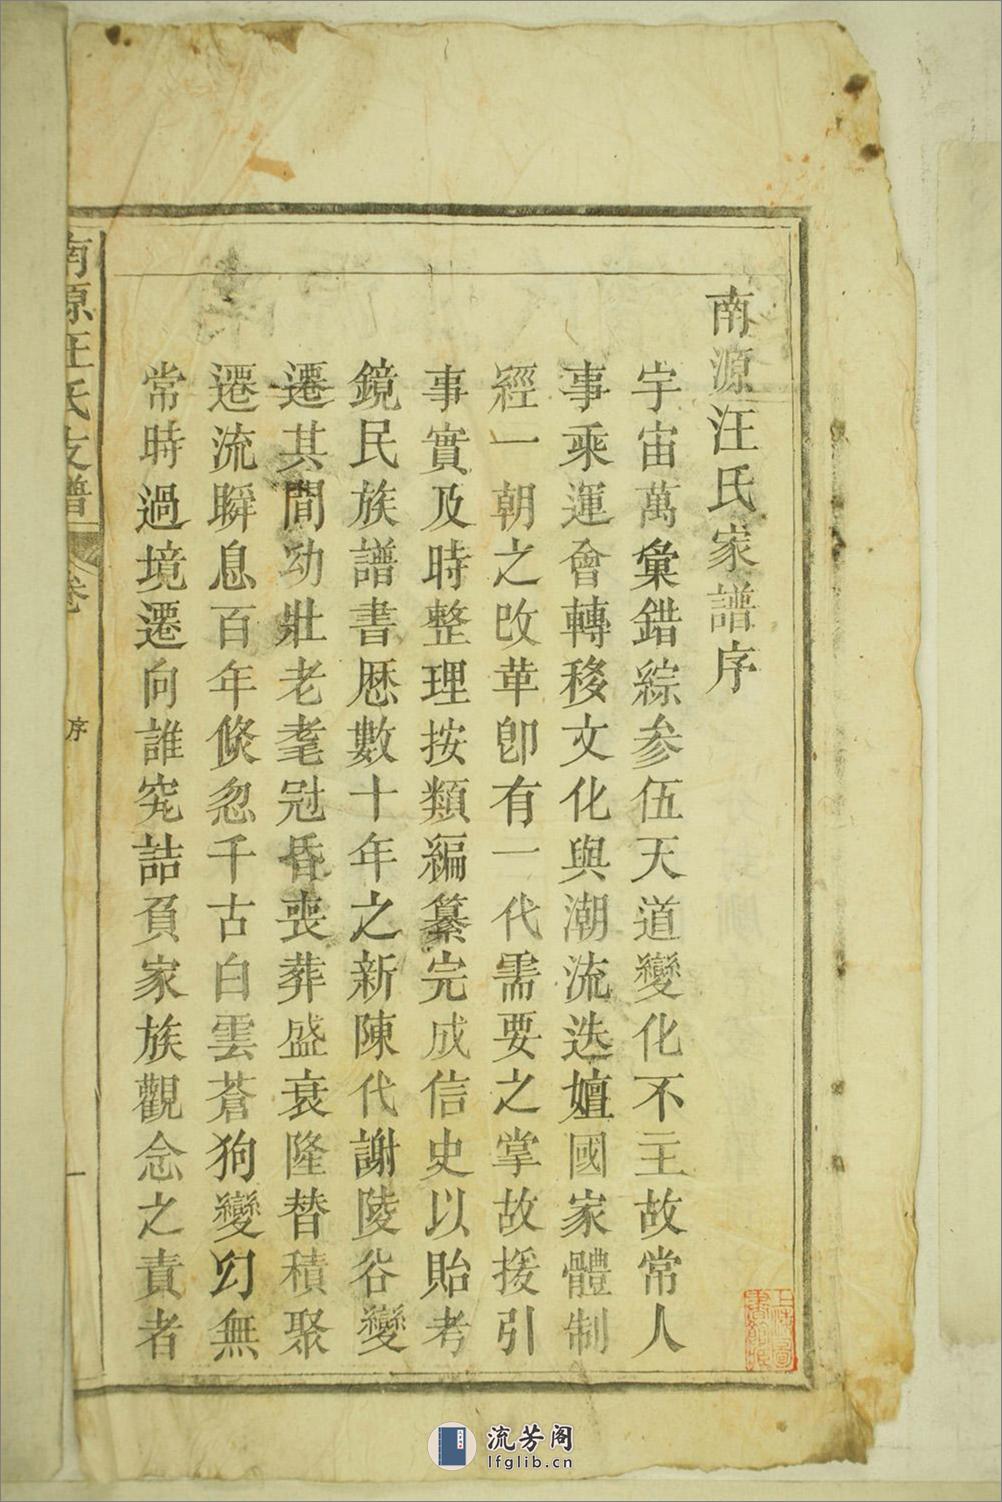 南源汪氏家譜序
宇宙萬彙錯綜參伍天道變化不主故常人
事乘運會轉移文化與潮流迭嬗國家體制
經一朝之改革卽有一代需要之掌故援引
事實及時整理按類編纂完成信史以貽考
鏡民族譜書歷數十年之新陳代謝陵谷變
遷其間幼壯老耄冠昏喪葬盛衰隆替積聚
遷流瞬息百年倏忽千古白雲蒼狗變幻無
常時過境遷向誰究詰負家族觀念之責者
南源汪氏支譜 卷 序 一
流芳阁
lfglib.cn